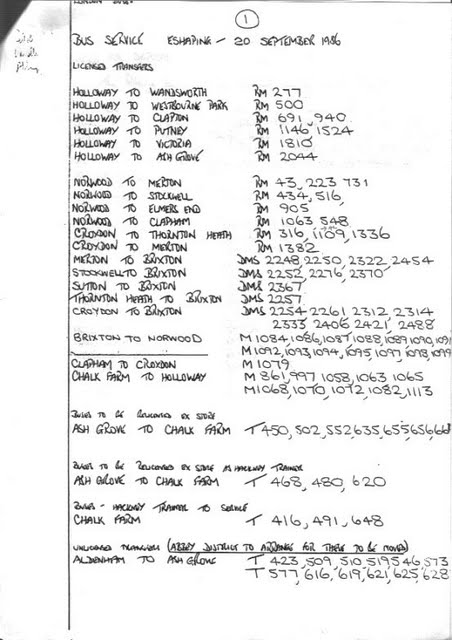 1
BUS SERVICE RESHAPING - 20 SEPTEMBER 1986
LICENSED TRANSFERS
HOLLOWAY TO WANDSWORTH RM 277
HOLLOWAY TO WESTBOURNE PARK RM 500
HOLLOWAY TO CLAPTON RM 691, 940
HOLLOWAY TO PUTNEY RM 1146, 1524
HOLLOWAY TO VICTORIA RM 1810
HOLLOWAY TO ASH GROVE RM 2044
NORWOOD TO MERTON RM 43, 223 731
NORWOOD TO STOCKWELL RM 434, 516,
NORWOOD TO ELMERS END RM 905
NORWOOD TO CLAPHAM RM 1063 548
CROYDON TO THORNTON HEATH RM 316, 1109, 1336
CROYDON TO MERTON RM 1382
MERTON TO BRIXTON DMS 2248, 2250, 2322, 2454
STOCKWELL TO BRIXTON DMS 2252, 2276, 2370
SUTTON TO BRIXTON DMS 2367
THORNTON HEATH TO BRIXTON DMS 2257
CROYDON TO BRIXTON DMS 2254 2261 2312, 2314
2333 2406 2421, 2488
BRIXTON TO NORWOOD M 1084, 1086, 1087, 1088, 1089, 1090, 1091
M 1092, 1093, 1094, 1095, 1097, 1098, 1099
CLAPHAM TO CROYDON M 1079
CHALK FARM TO HOLLOWAY M 861, 997 1058, 1063 1065
M 1068, 1070, 1072, 1082, 1113
BUSES TO BE RELICENSED EX STORE
ASH GROVE TO CHALK FARM T 450, 502, 552, 635, 655, 656, 666
BUSES TO BE RELICENSED EX STORE AS HACKNEY TRAINER
ASH GROVE TO CHALK FARM T 468, 480, 620
BUSES - HACKNEY TRAINER TO SERVICE
CHALK FARM T 416, 491, 648
UNLICENSED TRANSFERS (ABBEY DISTRICT TO ARRANGE FOR THESE TO BE MOVED)
ALDENHAM TO ASH GROVE T 423, 509, 510, 519 546, 573
T 577, 616, 619, 621, 625, 628